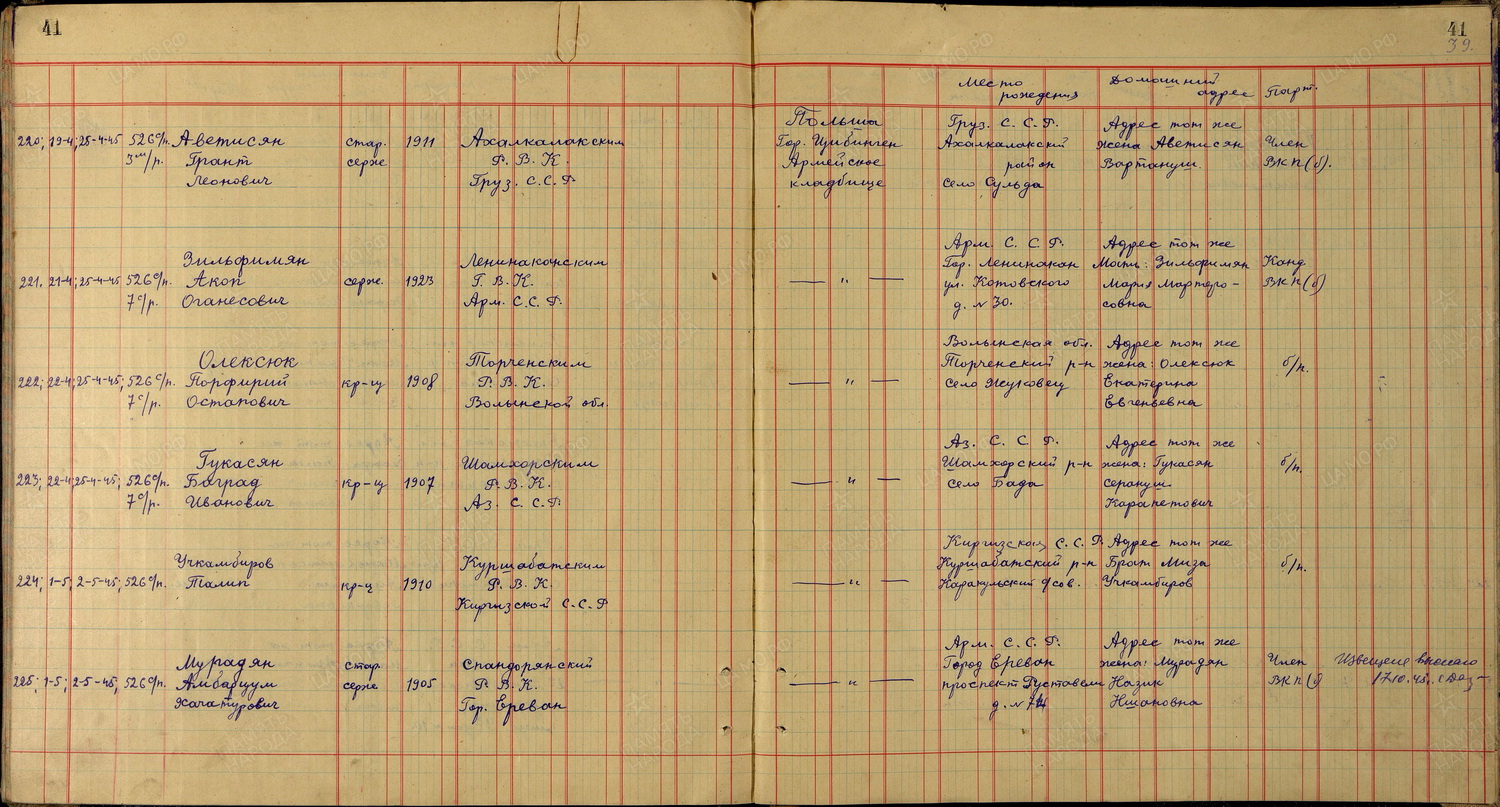 41
41
39.
Место рождения Домашний адрес Парт.
220; 19-4; 25-4-45 526 с/п. Аветисян стар. 1911 Ахалкалакским Польша Груз. С. С. Р. Адрес тот же
3 /р. Грант серж Р. В. К. Гор. Цибинген Ахалкалакский жена Аветисян Член
Леонович Груз. С.С.Р Армейское район Вартануш. ВКП(б).
кладбище село Сульда
Зильфимян Ленинаконским Арм. С. С. Р. Адрес тот же
221. 21-4; 25-4-45 526 с/п. Акоп серж. 1923 Г. В. К. — " — Гор. Ленинакан Мать: Зильфимян Канд
7 с/р. Оганесович Арм. С.С.Р. ул. Котовского Мария Мартеро- ВКП(б)
д. № 30. совна
Олексюк Торченским Волынская обл. Адрес тот же
222; 22-4; 25-4-45; 526 с/п. Порфирий кр-ц 1908 Р. В. К. — " — Торченский р-н жена: Олексюк б/п.
7 с/р. Остапович Волынской обл. село Жуковец Екатерина
Евгеньевна
Гукасян Шамхорским Аз. С. С. Р. Адрес тот же
223; 22-4; 25-4-45; 526 с/п. Баград кр-ц 1907 Р. В. К. — " — Шамхорский р-н жена: Гукасян б/п.
7 с/р. Иванович Аз. С. С. Р. село Бада серануш
Карапетович
Учкамбиров Куршабатским Киргизская С. С. Р. Адрес тот же
224; 1-5; 2-5-45; 526 с/п. Талип кр-ц 1910 Р. В. К. — " — Куршабатский р-н Брат Миза б/п.
Киргизской С.С.Р Каракульский с/сов. Учкамбиров
Мурадян стар. Спандорянский Арм. С. С. Р. Адрес тот же
225; 1-5; 2-5-45; 526 с/п. Амбарцум серж 1905 Р. В. К. — " — Город Ереван жена: Мурадян Член Извещение выслано
Хачатурович Гор. Ереван проспект Руставели Назик ВКП(б) 17.10.45.
д. № 74 Ншановна